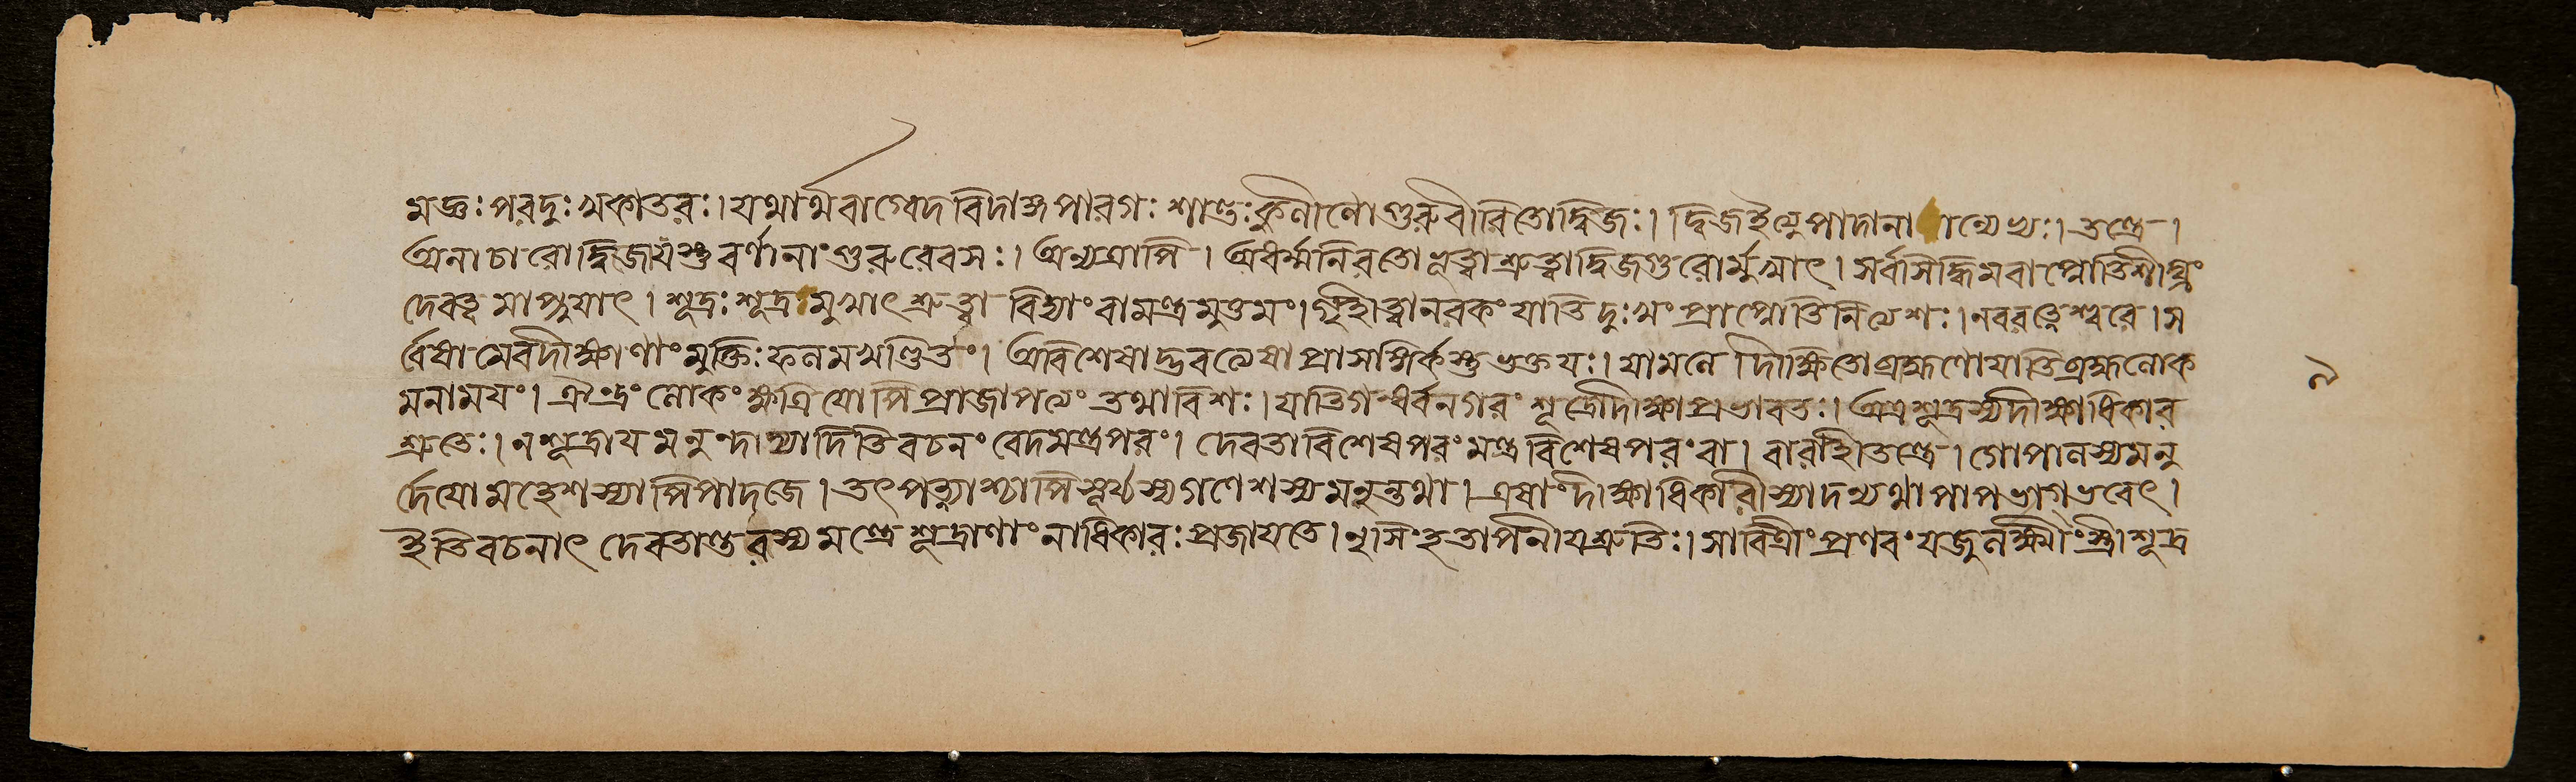 মজ্ঞঃ পরদুঃখকাতরঃ। যথার্থবাগ্বেদবিদাঙ্গপারগঃ শান্তঃকুলীনোগুরুরীরিতোদ্বিজঃ। দ্বিজইত্যুপাদানা ন্মেখ্যঃ। তন্ত্রে।
অনাচারোদ্বিজায়স্তু বর্ণানাংগুরুরেবসঃ। অন্যত্রাপি। অধর্ম্মনিরতোভূত্বাশ্রুত্বাদ্বিজগুরোর্মুখাৎ। সর্বসিদ্ধিমবাপ্নোতিশীঘ্রং
দেবত্বমাপ্নুয়াৎ। শূদ্রঃ শূদ্রমুখাৎ শ্রুত্বা বিদ্যাং বা মন্ত্রমুত্তমং। গৃহীত্বানরকংযাতিদুঃখংপ্রাপ্নোতিনিত্যশঃ। নবরত্নেশ্বরে। স
র্বেষামেবদীক্ষাণাংমুক্তিঃফলমখণ্ডিতং। অবিশেষাদ্ভবত্যেষা প্রাসঙ্গির্কস্তুভুক্তয়ঃ। যামলে দীক্ষিতোব্রহ্মণোযাতিব্রহ্মলোক
মনাময়ং। ঐন্দ্রং লোকংক্ষত্রিয়োপিপ্রাজাপত্যং তথাবিশঃ। যাতিগন্ধর্বনগরং শূদ্রোদীক্ষাপ্রভাবতঃ। অত্রশূদ্রস্যদীক্ষাধিকার
শ্রুতেঃ। নশূদ্রায়মনুন্দাদ্যাদিতিবচনং বেদমন্ত্রপরং। দেবতাবিশেষপরংমন্ত্রবিশেষপরং বা। বারাহীতন্ত্রে। গোপালস্যমনু
র্দেয়োমহেশস্যাপিপাদজে। তৎপত্ন্যাশ্চাপিসূর্য্যস্যগণেশস্যমনুন্তথা। এষাংদীক্ষাধিকারীস্যাদন্যথাপাপভাগ্ভবেৎ।
ইতিবচনাৎ দেবতান্তরস্যমন্ত্রে শূদ্রাণাংনাধিকারঃ প্রজায়তে। নৃসিংহতাপনীয়শ্রুতিঃ। সাবিত্রীংপ্রণবংযজুর্লক্ষ্মীং স্ত্রীশূদ্র
৯